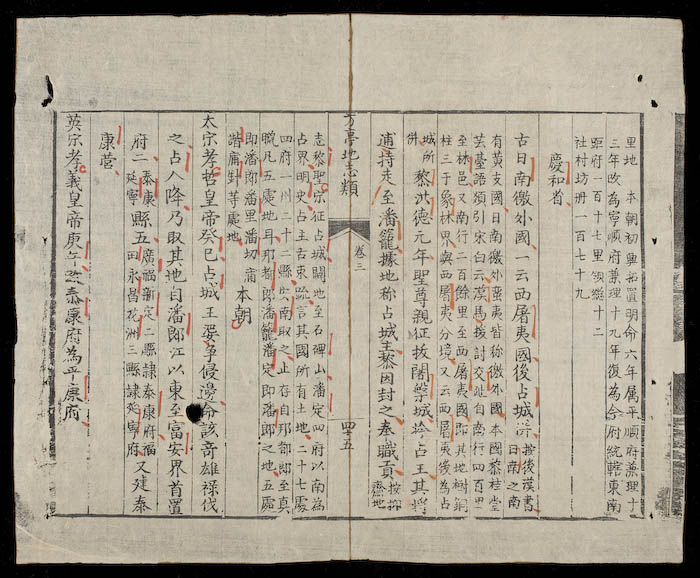 里地 本朝初興拓置明命六年属平順府兼理十
三年改為寧順府兼理十九年復為合府統轄東南
距府一百十七里領縣十二
社村坊冊一百七十九
慶和省
古日南徼外國一云西屠夷國後占城併 按後漢書
日南之南
有黄支國日南徼外蛮夷皆称徼外國本國黎桂堂
芸臺語類引宋白云漢馬援討交趾自南行四百里
至林邑又南行二百餘里至西屠夷國即其地樹銅
柱三于象林界與西屠夷分境又云西屠夷後為占
城所
併 黎洪德元年聖尊親征抜闍槃城擒占王其將
逋持走至潘籠據地称占城主黎因封之奉職貢 按
齋地
方亭地志類
卷三
四十五
志黎聖宗征占城闢地至石碑山潘定四府以南為
占界明史占主古來疏言其國所有土地二十七處
四府一州二十二縣安南取之止存自邦都郎至真
職凡五處地耳邦都郎潘籠潘定即潘郎之地五處
即潘郎潘里潘切蒲
諧庸對等處地 本朝
太宗孝哲皇帝癸巳占城王婆爭侵邊命該奇雄禄伐
之占人降乃取其地自潘郎江以東至富安界首置
府二 泰康
延寧 縣五 廣福新定二縣隷泰康府福
田永昌花洲三縣隷延寧府 又建泰
康营
英宗孝義皇帝庚午改泰康府為平康府